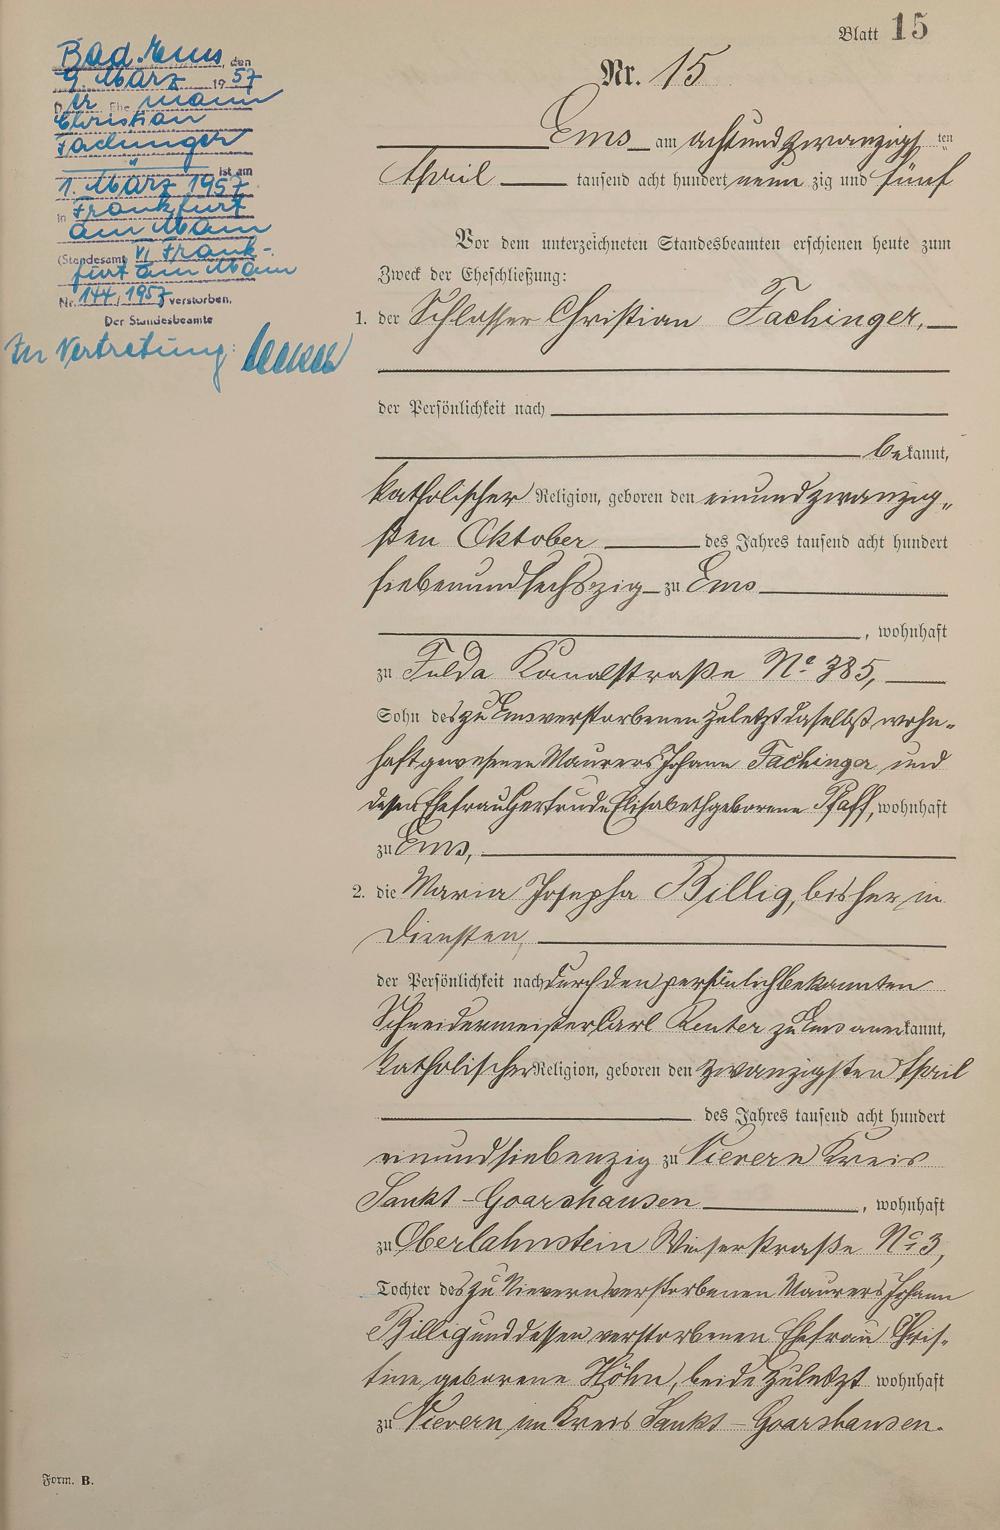 Blatt 15
Bad Ems, den
9. März 1957
Der Ehemann
Christian
Fachinger
ist am
1. März 1957
in Frankfurt
am Main
(Standesamt VI Frank-
furt am Main
Nr. 144/1957 verstorben.
Der Standesbeamte
In Vertretung:
Nr. 15
Ems am achtundzwanzigsten
April tausend acht hundert neunzig und fünf
Vor dem unterzeichneten Standesbeamten erschienen heute zum
Zweck der Eheschließung:
1. der Schlosser Christian Fachinger,
der Persönlichkeit nach
bekannt,
katholischer Religion, geboren den einundzwanzig-
sten Oktober des Jahres tausend acht hundert
siebenundsechszig zu Ems
, wohnhaft
zu Fulda Kanalstraße No. 385,
Sohn des zu Ems verstorbenen zuletzt daselbst wohn-
haft gewesenen Maurers Johann Fachinger und
dessen Ehefrau Gertrude Elisabeth geborene Pfaff, wohnhaft
zu Ems,
2. die Maria Josepha Billig, bisher in
Diensten,
der Persönlichkeit nach durch den persönlich bekannten
Schneidermeister Carl Reuter zu Ems anerkannt,
katholischer Religion, geboren den zwanzigsten April
des Jahres tausend acht hundert
einundsiebenzig zu Nievern Kreis
Sankt-Goarshausen, wohnhaft
zu Oberlahnstein No. 3,
Tochter des zu Nievern verstorbenen Maurers Johann
Billig und dessen verstorbenen Ehefrau Chris-
tine geborene Höhn, beide zuletzt wohnhaft
zu Nievern im Kreis Sankt-Goarshausen.
Form. B.